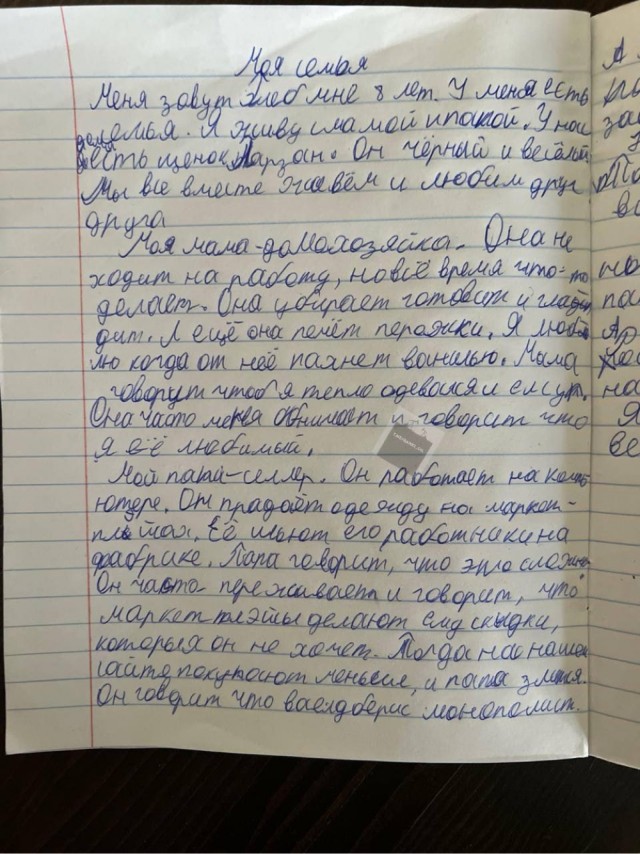 Моя семья
Меня зовут Хлеб мне 8 лет. У меня есть
семья. Я живу с мамой и папой. У нас
дома есть щенок Марзан. Он чёрный и весёлый
Мы все вместе живём и любим друг
друга
Моя мама-домохозяйка. Она не
ходит на работу, но всё время что-то
делает. Она убирает готовит и глади
дит. А ещё она печёт перажки. Я люб
лю когда от неё пахнет ванилью. Мама
говорит чтоб я тепло одевался и ел суп.
Она часто меня обнимает и говорит что
я её любимый.
Мой папа-селлер. Он работает на комп
ютере. Он прадаёт одежду на маркет-
плэйсах. Её шьют его работники на
фабрике. Папа говорит, что это сложно
Он часто переживает и говорит, что
маркетплэйсы делают ему скидки,
которых он не хочет. Тогда на нашем
сайте покупают меньше, и папа злится.
Он говорит что ваелдберис монополист.
А
за
По
вс
на
Я
ве